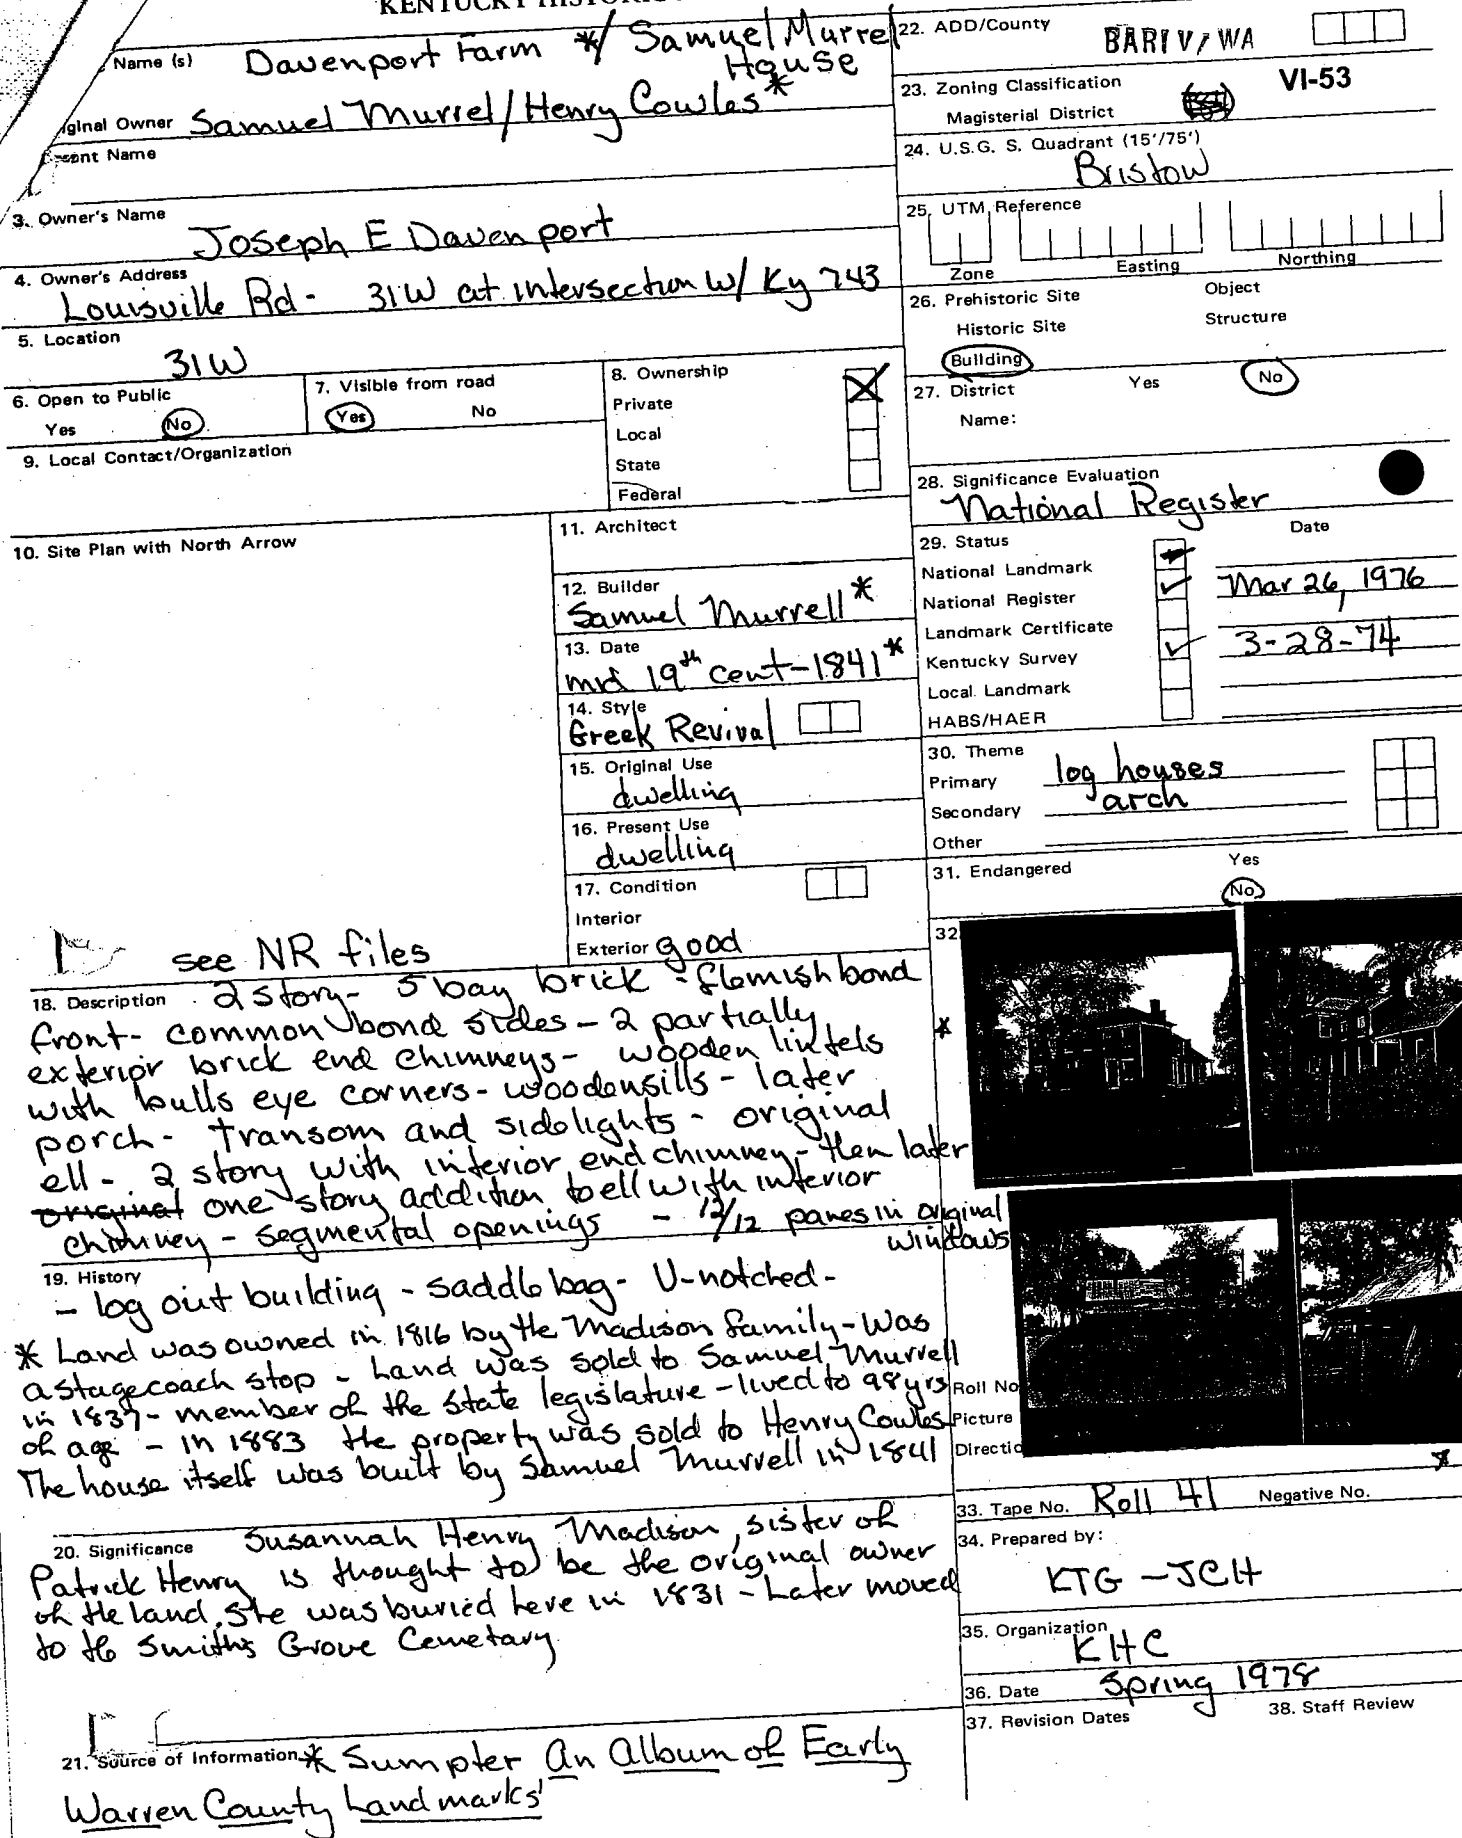 KENTUCKY HISTORIC
Name (s) Davenport Farm */ Samuel Murrel
House
Original Owner Samuel Murrel/Henry Cowles*
Present Name
3. Owner's Name
Joseph E Davenport
4. Owner's Address
Louisville Rd - 31W at intersection w/ Ky 743
5. Location
31W
6. Open to Public
Yes No
7. Visible from road
Yes No
8. Ownership
Private
Local
State
Federal
9. Local Contact/Organization
10. Site Plan with North Arrow
see NR files
11. Architect
12. Builder
Samuel Murrell*
13. Date
mid 19th cent-1841*
14. Style
Greek Revival
15. Original Use
dwelling
16. Present Use
dwelling
17. Condition
Interior
Exterior good
18. Description 2 story- 5 bay brick - flemish bond
front- common bond sides - 2 partially
exterior brick end chimneys- wooden lintels
with bulls eye corners - wooden sills - later
porch - transom and sidelights - original
ell - 2 story with interior end chimney - then later
original one story addition to ell with interior
chimney - segmental openings - 12/12 panes in original
windows
19. History
- log out building - saddle bag - U-notched -
* Land was owned in 1816 by the Madison family - Was
a stagecoach stop - Land was sold to Samuel Murrell
in 1837 - member of the state legislature - lived to 98 yrs
of age - in 1883 the property was sold to Henry Cowles
The house itself was built by Samuel Murrell in 1841
20. Significance Susannah Henry Madison, sister of
Patrick Henry is thought to be the original owner
of the land. She was buried here in 1831 - Later moved
to the Smiths Grove Cemetary
21. Source of Information * Sumpter An Album of Early
Warren County Landmarks
22. ADD/County BARIV/WA
23. Zoning Classification VI-53
Magisterial District
24. U.S.G. S. Quadrant (15'/75')
Bristow
25. UTM Reference
Zone Easting Northing
26. Prehistoric Site Object
Historic Site Structure
Building
27. District Yes No
Name:
28. Significance Evaluation
National Register
29. Status Date
National Landmark
National Register Mar 26, 1976
Landmark Certificate
Kentucky Survey 3-28-74
Local Landmark
HABS/HAER
30. Theme
Primary log houses
Secondary arch
Other
31. Endangered Yes
No
32
*
Roll No
Picture
Directio
*
33. Tape No. Roll 41 Negative No.
34. Prepared by:
KTG - JCH
35. Organization
KHC
36. Date Spring 1978
37. Revision Dates 38. Staff Review